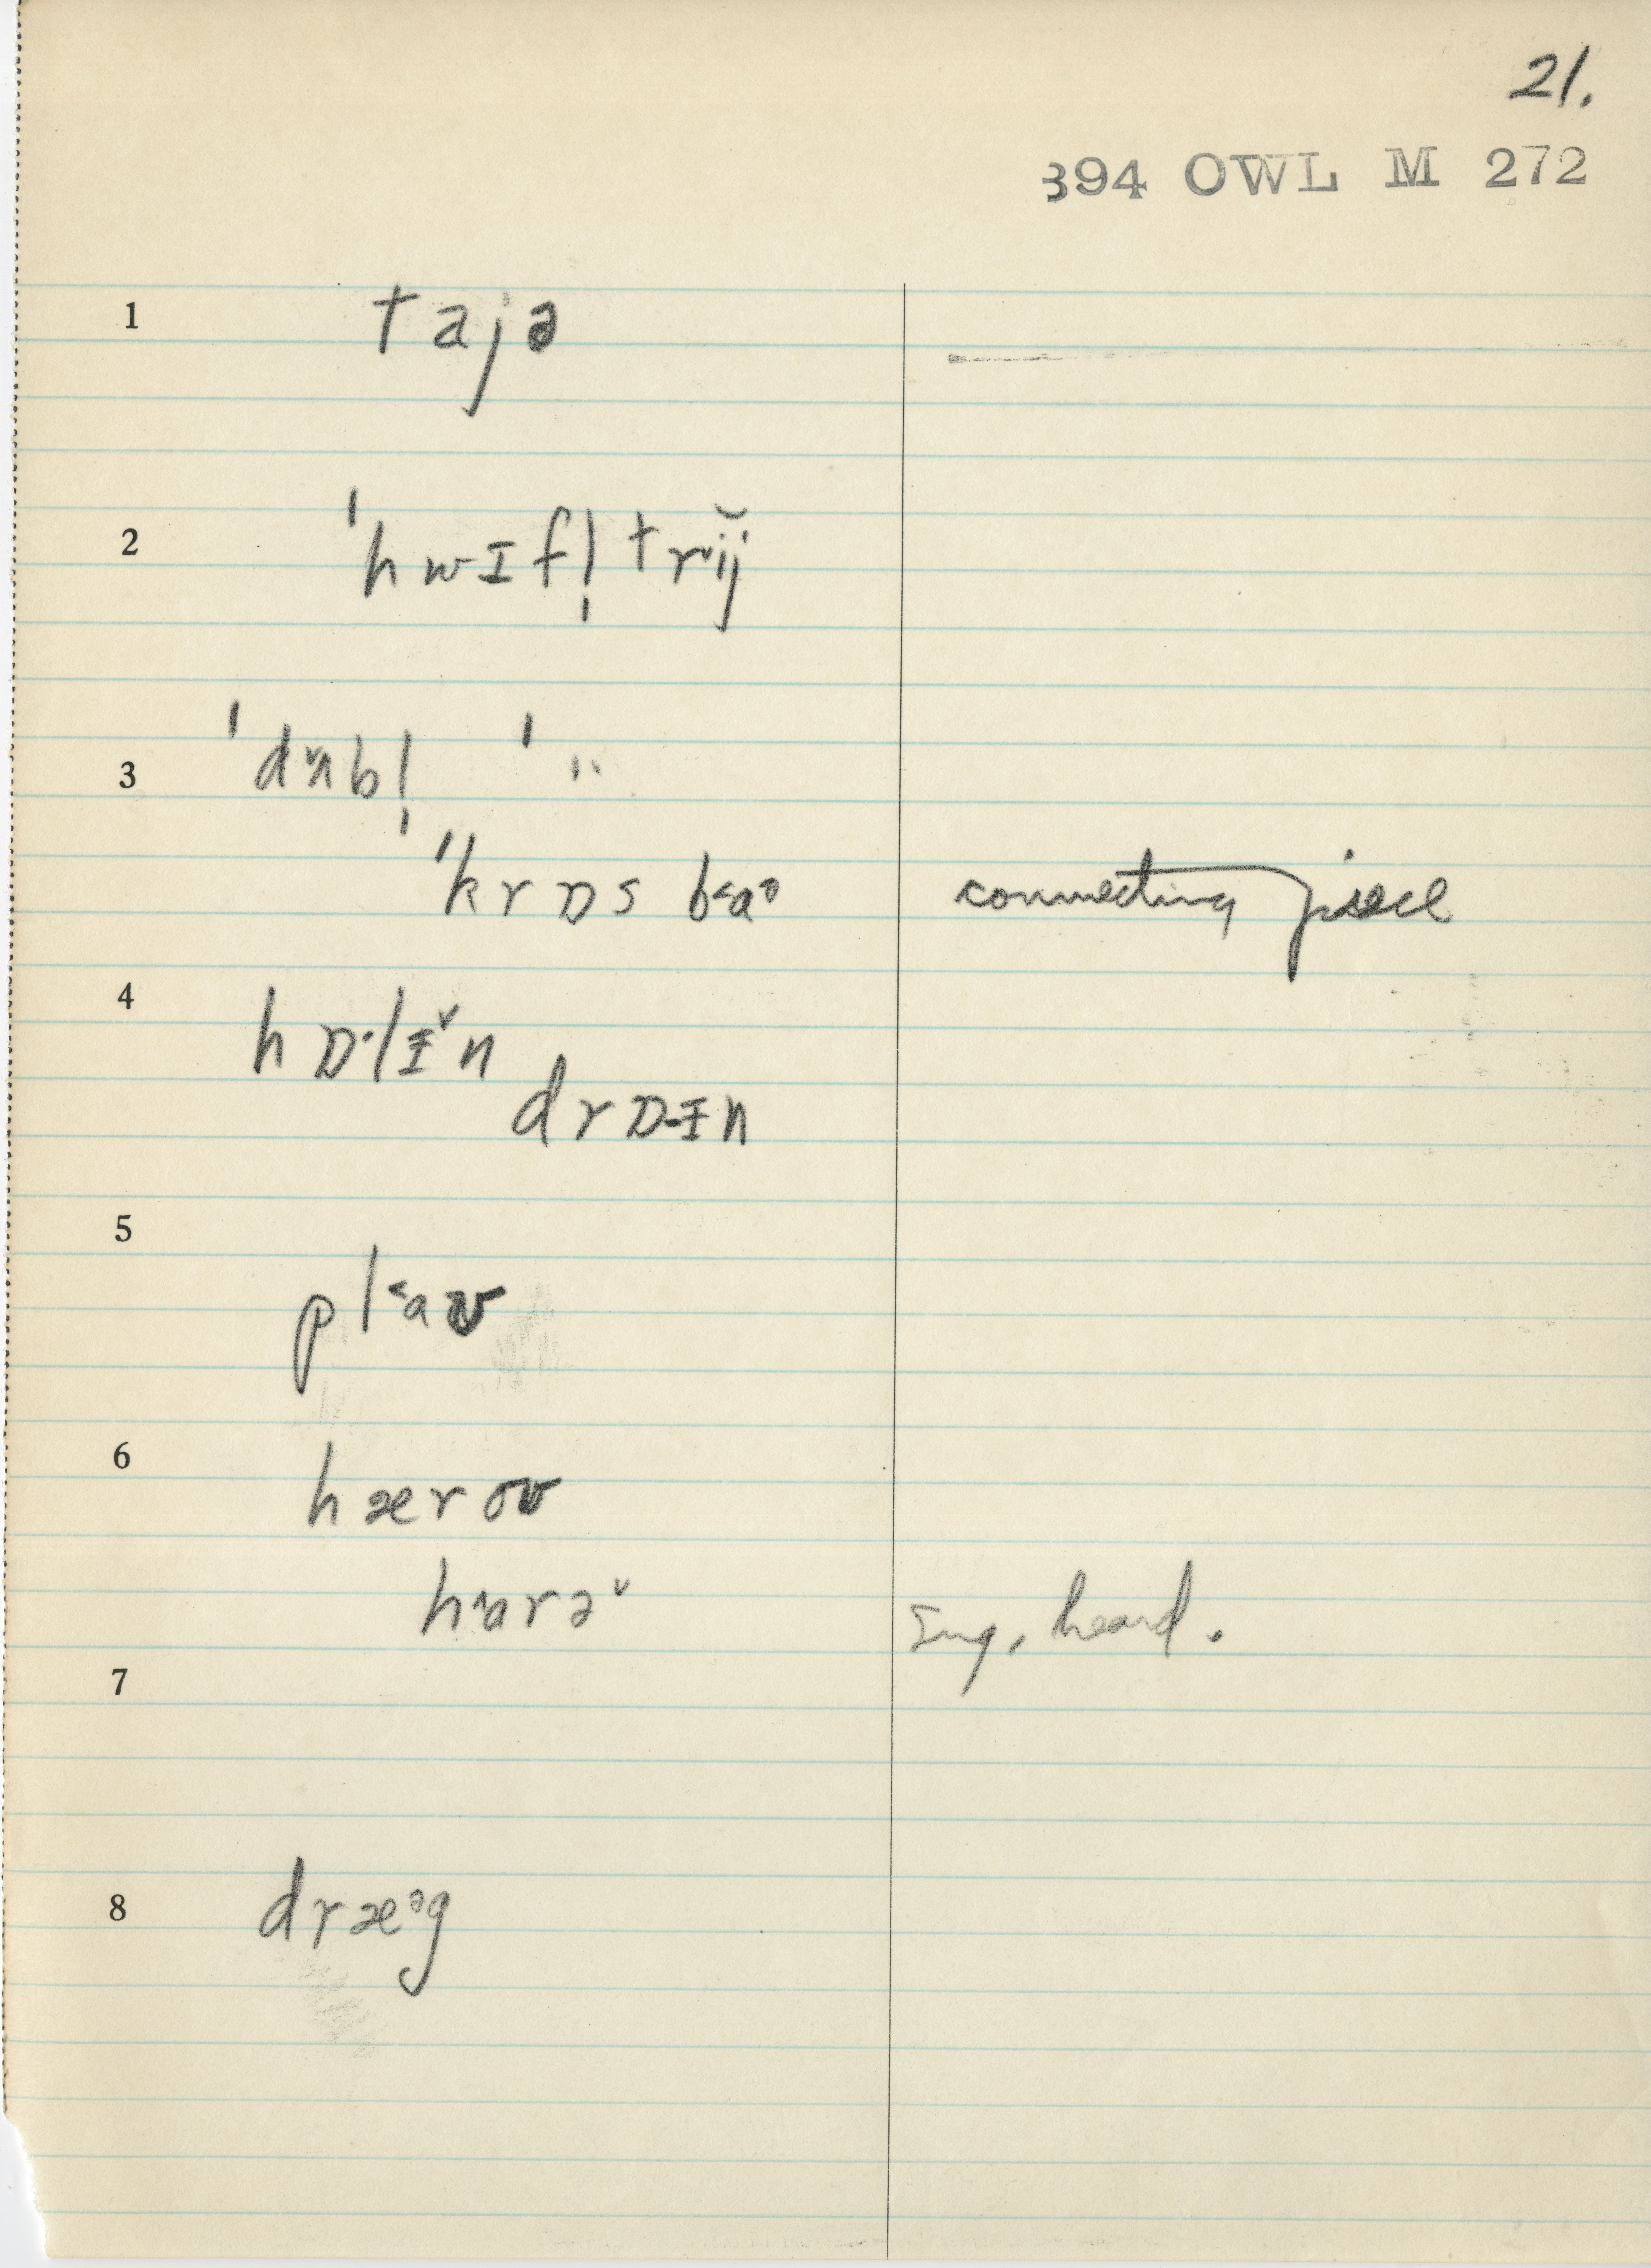 21.
394 OWL M 272
1 tajə
2 ˈhwɪfl̩trĭj
3 ˈdʌ˅bl̩ ˈ ¨
ˈkrɒs b˂aᵊ connecting piece
4 hɒ·lɪ˅n
drɒ-ɪn
5 pl˂aʊ
6 hæroʊ
h˄arə˅ Inf. heard.
7
8 dræᵊg